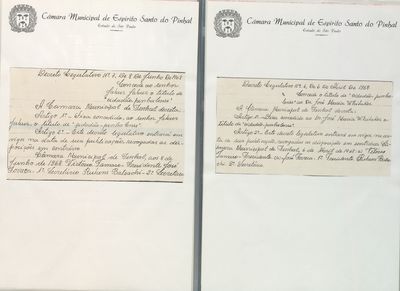 Câmara Municipal de Espírito Santo do Pinhal
Estado de São Paulo
Decreto Legislativo Nº 7, de 8 de Junho de 1968
"Concede ao senhor
o título de
"cidadão pinhalense"
A Câmara Municipal de Pinhal decreta:
Artigo 1º - Fica concedido, ao senhor
o título de "cidadão pinhalense".
Artigo 2º - Este decreto legislativo entrará em
vigor na data de sua publicação, revogadas as dis-
posições em contrário.
Câmara Municipal de Pinhal, aos 8 de
Junho de 1968. Presidente José
1º Secretário Rubens 2º Secretário
Câmara Municipal de Espírito Santo do Pinhal
Estado de São Paulo
Decreto Legislativo Nº 6, de 6 de Abril de 1968
"Concede o título de "cidadão pinha-
lense" ao Dr. José
A Câmara Municipal de Pinhal decreta:
Artigo 1º - Fica concedido ao Dr. José o
título de "cidadão pinhalense".
Artigo 2º - Este decreto legislativo entrará em vigor na da-
ta de sua publicação, revogadas as disposições em contrário. Câ-
mara Municipal de Pinhal, 6 de Abril de 1968.
Presidente José 1º Secretário Rubens
2º Secretário